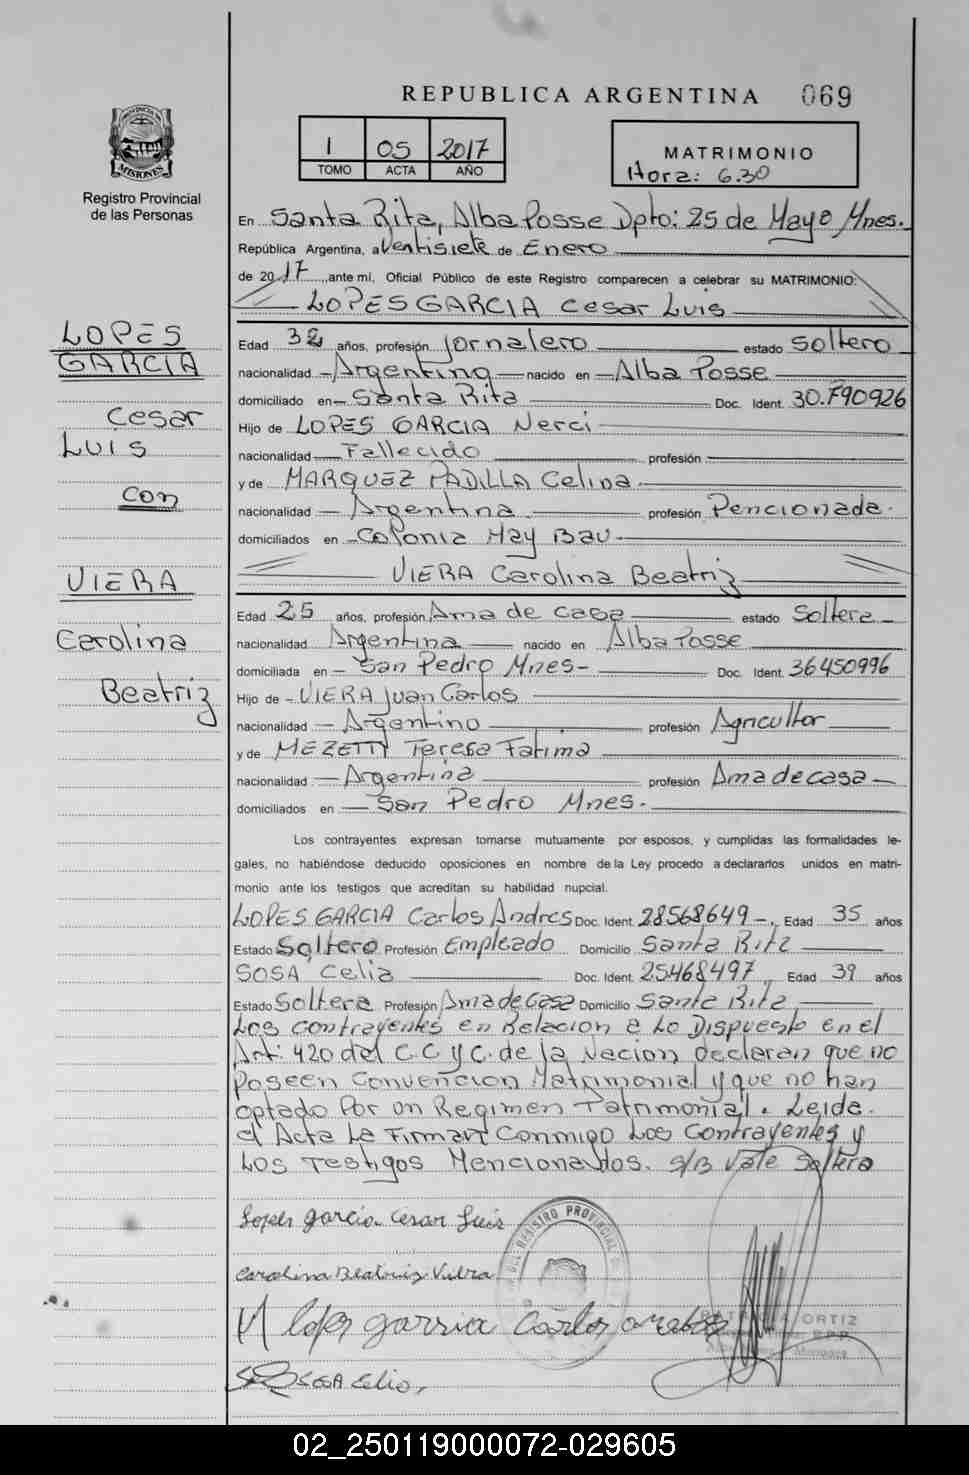 REPUBLICA ARGENTINA 069
PROVINCIA
MISIONES
Registro Provincial
de las Personas
1 05 2017
TOMO ACTA AÑO
MATRIMONIO
Hora: 6.30
En Santa Rita, Alba Posse Dpto: 25 de Mayo Mnes.
República Argentina, a Ventisiete de Enero
de 2017, ante mi, Oficial Público de este Registro comparecen a celebrar su MATRIMONIO:
LOPES GARCIA Cesar Luis
LOPES
GARCIA
Cesar
LUIS
con
VIERA
Carolina
Beatriz
Edad 32 años, profesión Jornalero estado Soltero
nacionalidad Argentino nacido en Alba Posse
domiciliado en Santa Rita Doc. Ident. 30.790926
Hijo de LOPES GARCIA Nerci
nacionalidad Fallecido profesión
y de MARQUEZ PADILLA Celina
nacionalidad Argentina profesión Pencionada.
domiciliados en Colonia May Bau
VIERA Carolina Beatriz
Edad 25 años, profesión Ama de casa estado Soltera
nacionalidad Argentina nacido en Alba Posse
domiciliada en San Pedro Mnes- Doc. Ident. 36450996
Hijo de VIERA Juan Carlos
nacionalidad Argentino profesión Agricultor
y de MEZETTI Teresa Fatima
nacionalidad Argentina profesión Ama de casa
domiciliados en San Pedro Mnes.
Los contrayentes expresan tomarse mutuamente por esposos, y cumplidas las formalidades le-
gales, no habiéndose deducido oposiciones en nombre de la Ley procedo a declararlos unidos en matri-
monio ante los testigos que acreditan su habilidad nupcial.
LOPES GARCIA Carlos Andres Doc. Ident. 28568649 -, Edad 35 años
Estado Soltero Profesión Empleado Domicilio Santa Rita
SOSA Celia Doc. Ident. 25468497, Edad 39 años
Estado Soltera Profesión Ama de Casa Domicilio Santa Rita
Los contrayentes en Relacion a Lo Dispuesto en el
Art: 420 del C.C y C. de la Nacion declaran que no
Poseen Convencion Matrimonial y que no han
optado Por un Regimen Patrimonial. Leida.
el Acta La Firman Conmigo Los Contrayentes y
Los Testigos Mencionados. S/B Vale Soltera
Lopes garcia Cesar Luis
Carolina Beatriz Viera
DEL REGISTRO PROVINCIAL
Lopes garsia Carlos andres
ORTIZ
SOSA Celia,
02_250119000072-029605